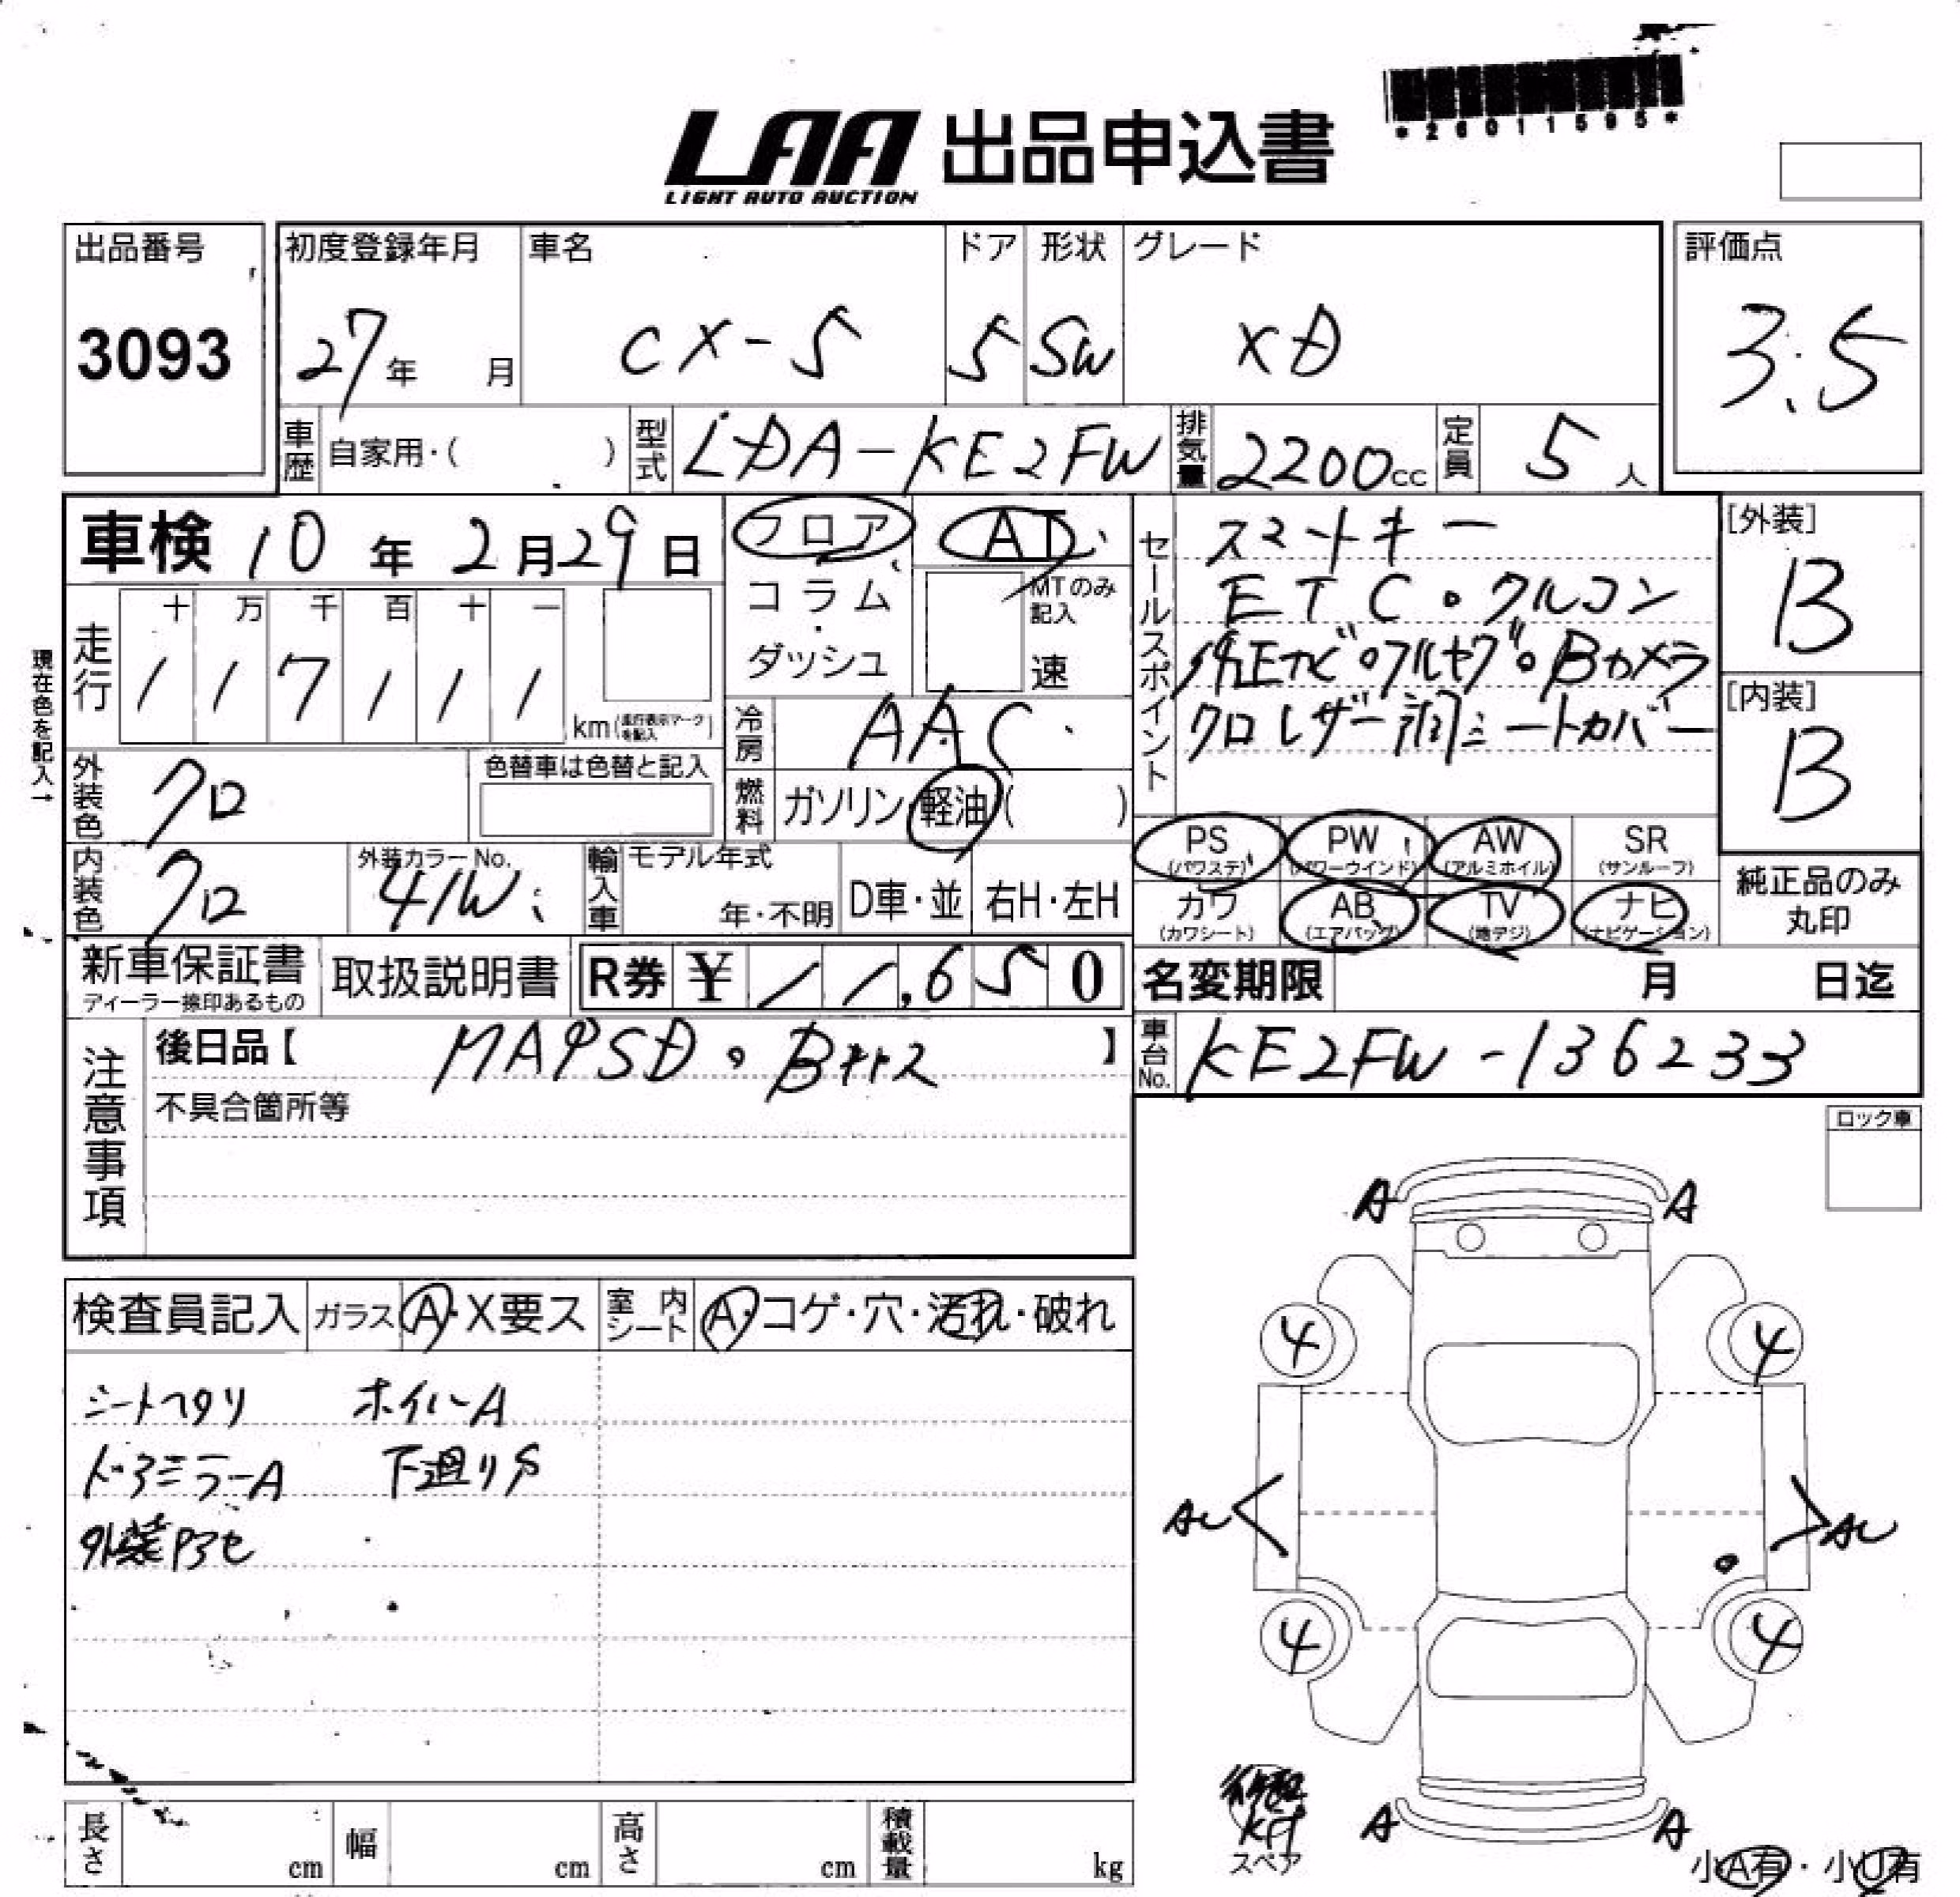 *26011595*
LAA 出品申込書
LIGHT AUTO AUCTION
出品番号 3093
初度登録年月 27年 月
車名 CX-5
ドア 5
形状 SW
グレード XD
評価点 3.5
車歴 自家用・( )
型式 LDA-KE2FW
排気量 2200cc
定員 5人
車検 10年2月29日
フロア AT
コラム・ダッシュ
MTのみ記入 速
現在色を記入→
走行 十 万 千 百 十 一
1 1 7 1 1 1 km (走行表示マークを記入)
冷房 AAC
燃料 ガソリン・軽油( )
外装色 クロ
色替車は色替と記入
内装色 クロ
外装カラーNo. 41W
輸入車 モデル年式 年・不明 D車・並 右H・左H
セールスポイント
スマートキー
ETC。クルコン
純正ナビ。フルセグ。Bカメラ
クロレザー調シートカバー
[外装] B
[内装] B
PS (パワステ) PW (パワーウインド) AW (アルミホイル) SR (サンルーフ)
カワ (カワシート) AB (エアバッグ) TV (地デジ) ナビ (ナビゲーション)
純正品のみ丸印
新車保証書 ディーラー捺印あるもの
取扱説明書
R券 ¥11,650
名変期限 月 日迄
車台No. KE2FW-136233
注意事項
後日品【 MAPSD。 】
不具合箇所等
ロック車
検査員記入 ガラス A・X要ス 室内シート A・コゲ・穴・汚れ・破れ
シートヘタリ ホイールA
ドアミラーA 下廻りS
外装
A A
4 4
AU AU
4 4
A A
スペア
小A有・小U有
長さ cm 幅 cm 高さ cm 積載量 kg